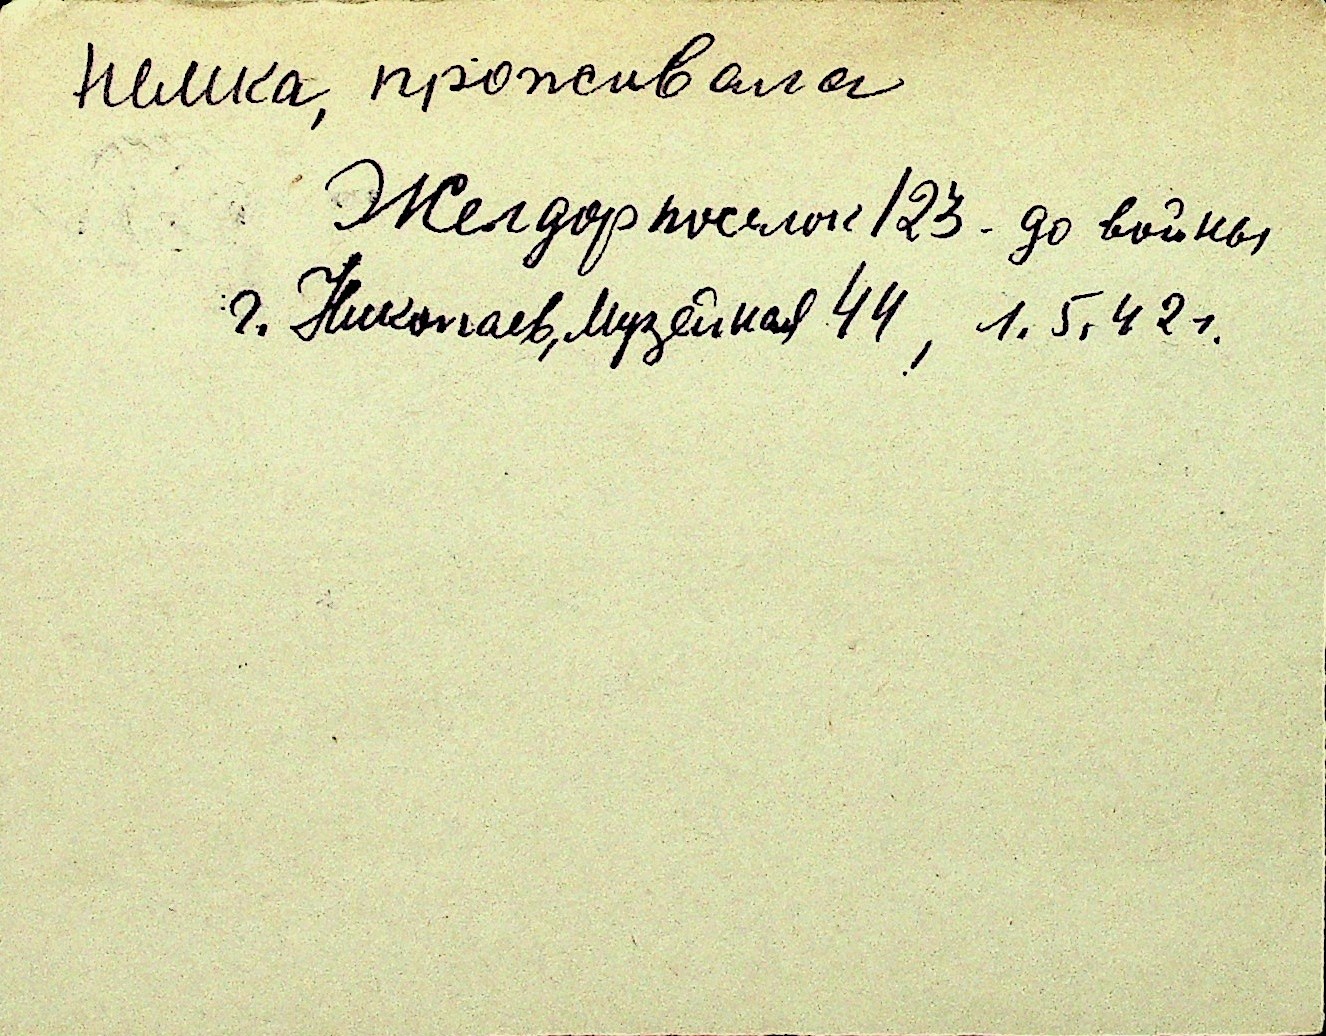 немка, проживала
Желдорпоселок 123 - до войны
г. Николаев, Музейная 44, 1.5.42 г.